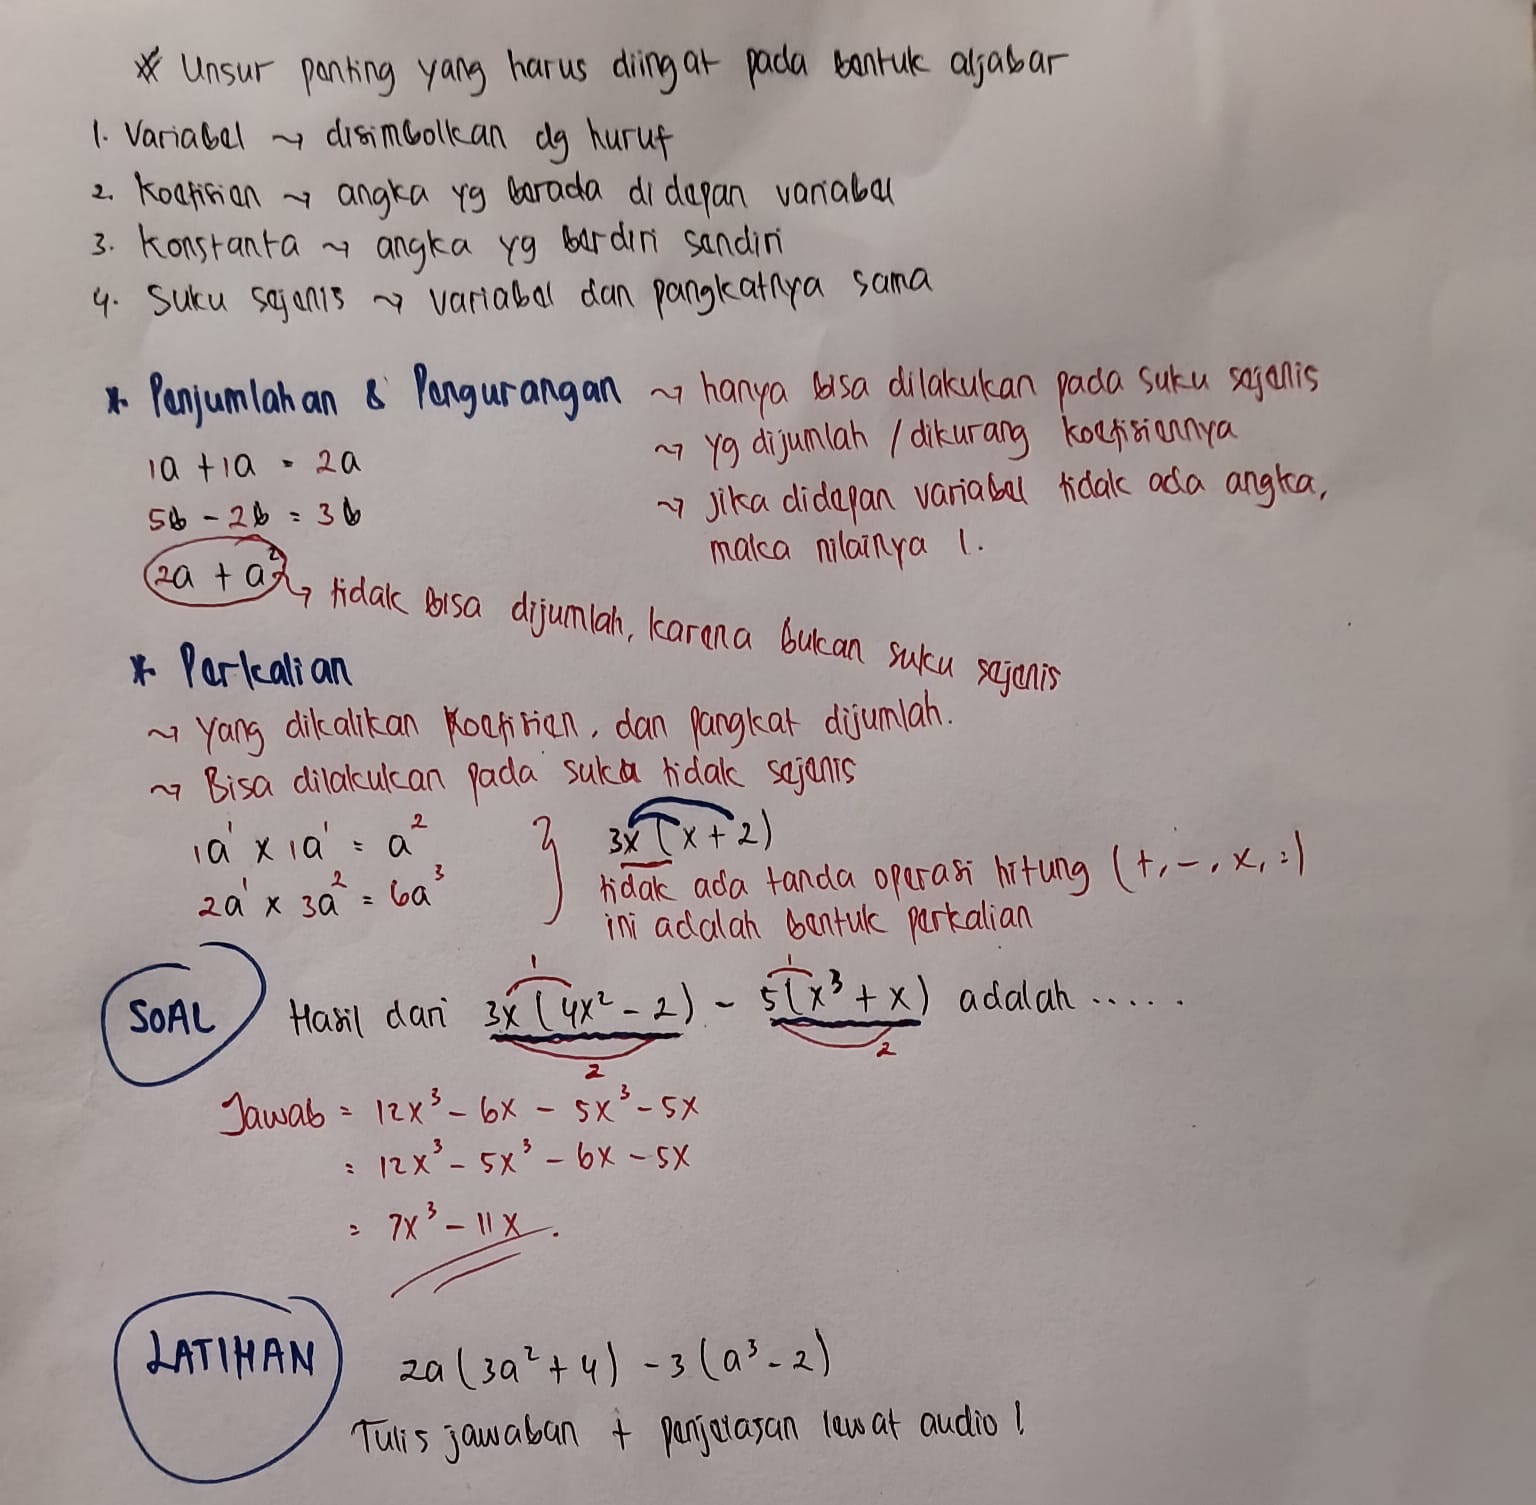 * Unsur penting yang harus diingat pada bentuk aljabar
1. Variabel ~> disimbolkan dg huruf
2. Koefisien ~> angka yg berada di depan variabel
3. Konstanta ~> angka yg berdiri sendiri
4. Suku sejenis ~> variabel dan pangkatnya sama
* Penjumlahan & Pengurangan ~> hanya bisa dilakukan pada suku sejenis
1a + 1a = 2a
~> yg dijumlah / dikurang koefisiennya
5b - 2b = 3b
~> jika didepan variabel tidak ada angka,
maka nilainya 1.
2a + a² ~> tidak bisa dijumlah, karena bukan suku sejenis
* Perkalian
~> Yang dikalikan koefisien, dan pangkat dijumlah.
~> Bisa dilakukan pada suku tidak sejenis
1a¹ x 1a¹ = a²
2a¹ x 3a² = 6a³
} 3x (x + 2)
tidak ada tanda operasi hitung (+, -, x, :)
ini adalah bentuk perkalian
SOAL Hasil dari 3x (4x² - 2) - 5(x³ + x) adalah .....
1 1
2 2
Jawab = 12x³ - 6x - 5x³ - 5x
= 12x³ - 5x³ - 6x - 5x
= 7x³ - 11x.
LATIHAN 2a (3a² + 4) - 3 (a³ - 2)
Tulis jawaban + penjelasan lewat audio !